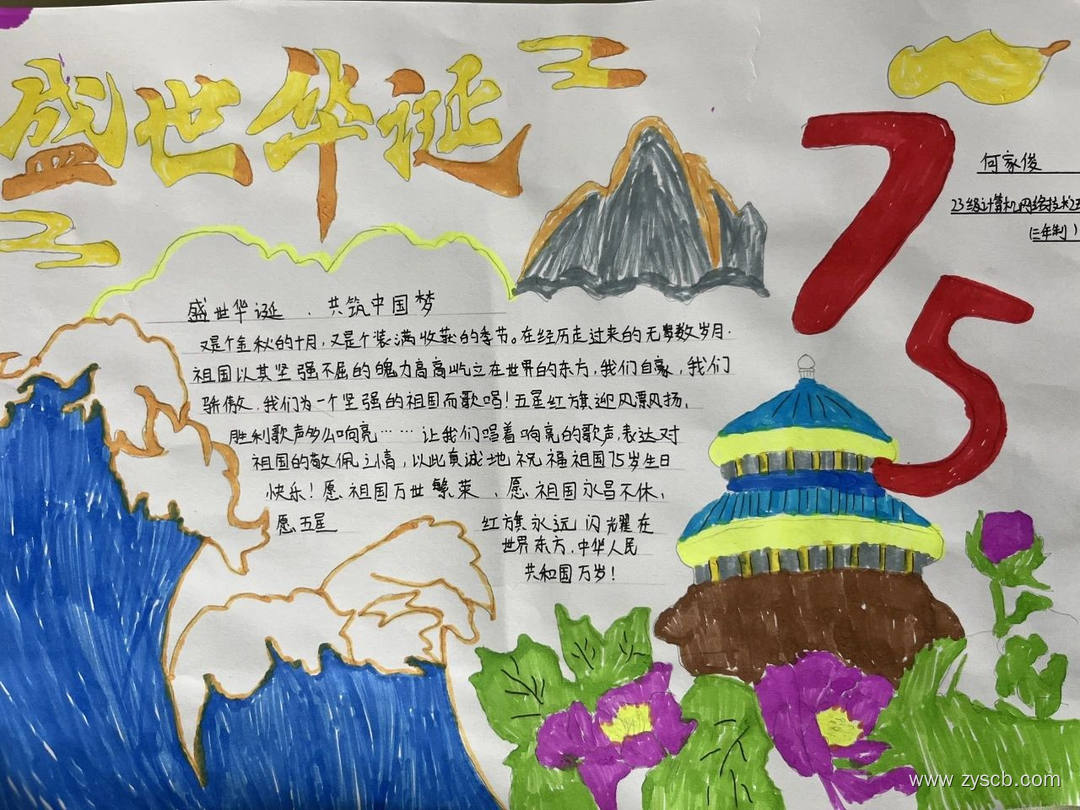 盛世华诞
75
何家俊
23级计算机网络技术2
(三年制)
盛世华诞、共筑中国梦
又是个金秋的十月,又是个装满收获的季节。在经历走过来的无数岁月.
祖国以其坚强不屈的魄力高高屹立在世界的东方,我们自豪,我们
骄傲.我们为一个坚强的祖国而歌唱!五星红旗迎风飘扬,
胜利歌声多么响亮……让我们唱着响亮的歌声,表达对
祖国的敬佩之情,以此真诚地祝福祖国75岁生日
快乐!愿祖国万世繁荣、愿祖国永昌不休,
愿五星红旗永远闪耀在
世界东方.中华人民
共和国万岁!
www.zyscb.com